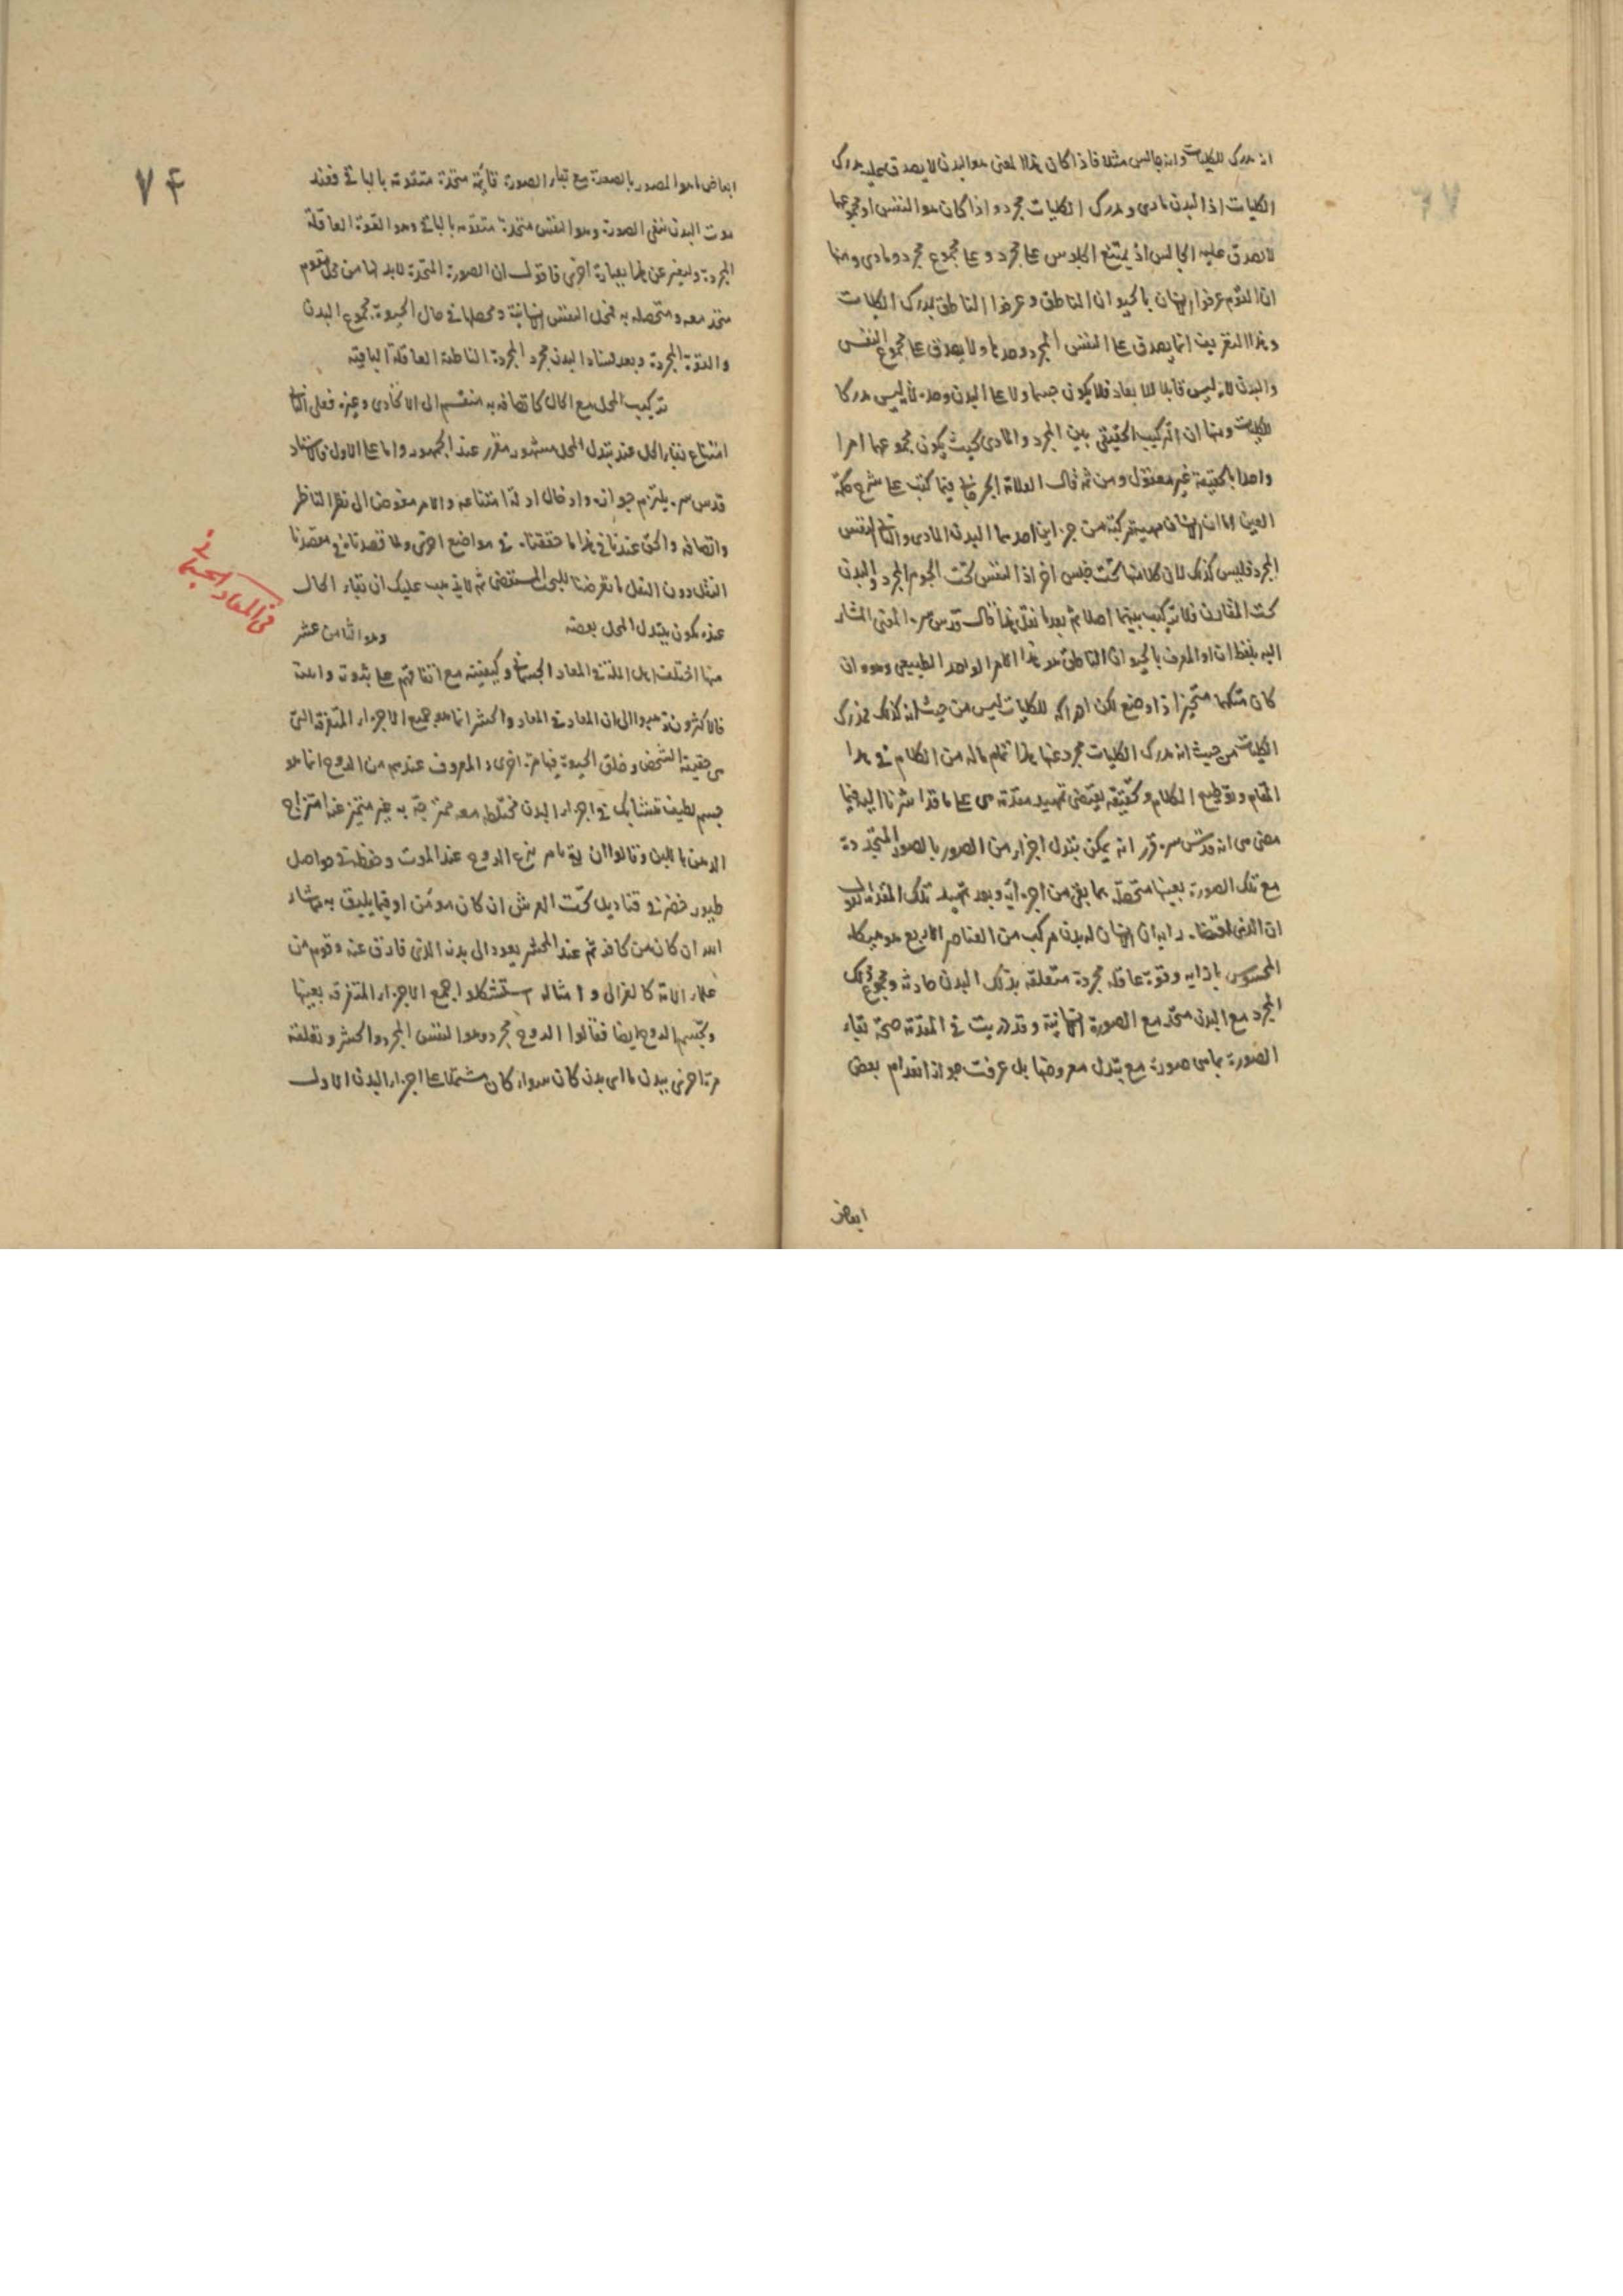 انه مدرك للكليات وانه جالس مثلا فاذا كان هذا المعنى هو البدن لا يصدق عليه مدرك
الكليات اذ البدن مادى ومدرك الكليات مجرد واذا كان هو النفس او مجموعهما
لا يصدق عليه الجالس اذ يمتنع الجلوس على مجرد وعلى مجموع مجرد ومادى ومنها
ان القوم عرفوا الانسان بالحيوان الناطق وعرفوا الناطق بمدرك الكليات
وهذا التعريف انما يصدق على النفس المجرد وحدها ولا يصدق على مجموع النفس
والبدن لانه ليس قابلا للابعاد فلا يكون جسما ولا على البدن وحده لانه ليس مدركا
للكليات ومنها ان التركيب الحقيقى بين المجرد والمادى بحيث يكون مجموعهما امرا
واحدا بالحقيقة غير معقول ومن ثمة قال العلامة الجرجانى فيما كتب على شرح حكمة
العين اما ان الانسان مهية مركبة من جزاين احدهما البدن المادى والثانى النفس
المجرد فليس كذلك لان كلا منهما تحت جنس اخر اذ النفس تحت الجوهر المجرد والبدن
تحت المقارن فلا تركيب بينهما اصلا ثم بعد ما نقل هذا قال قدس سره المعنى المشار
اليه بلفظ انا والمعرف بالحيوان الناطق هو هذا الامر الواحد الطبيعى وهو وان
كان متكمما متحيزا ذا وضع لكن ادراكه للكليات ليس من حيث انه كذلك فمدرك
الكليات من حيث انه مدرك الكليات مجرد عنها هذا تمام ماله من الكلام فى هذا
المقام وتوضيح الكلام وتحقيقه يقتضى تمهيد مقدمة هى على ما قد اشرنا اليه فيما
مضى هى انه قدس سره قرر انه يمكن تبدل اجزاء من الصور بالصور المتجددة
مع تلك الصورة بعينها متحصلة بما بقى من اجزائه وبعد تمهيد تلك المقدمة نقول
ان الذى اقتضاه رايه ان الانسان له بدن مركب من العناصر الاربع هو هيكله
المحسوس باذائه وقوة عاقلة مجردة متعلقة بذلك البدن حادثه ومجموع ذلك
المجرد مع البدن متحد مع الصورة الانسانية وقد دريت فى المقدمة صحة بقاء
الصورة بما هى صورة مع تبدل معروضها بل عرفت جواز انعدام بعض
ابعاض
۷۴
ابعاض ما هو المصور بالصورة مع بقاء الصورة قايمة متحدة متقومة بالباقى فعند
موت البدن تبقى الصورة وهو النفس متحدة متقومه بالباقى وهو القوة العاقلة
المجردة وليعبر عن هذا بعبارة اخرى فاقول ان الصورة المتحدة لابد لها من محل تقوم
متحد معه ومتحصله به فمحل النفس الانسانية ومحصلها فى حال الحيوة مجموع البدن
والقوة المجردة وبعد فساد البدن مجرد المجردة الناطقة العاقلة الباقيه
تركيب المحل مع الحال كاتصافه به منقسم الى الاتحادى وغيره فعلى الثانى
امتناع بقاء الحال عند تبدل المحل مشهور مقرر عند الجمهور واما على الاول فالاستاد
قدس سره يلتزم جوازه وادخال ادلة امتناعه والامر مفوض الى نظر الناظر
وانصافه والحق عندنا فى هذا ما حققناه فى مواضع اخرى ولما قصدنا فى مقصدنا
النقل دون النقل ما تعرضنا للبحث المستقضى ثم لا يذهب عليك ان بقاء الحال
عنده يكون بتبدل المحل بعضه وهو الثامن عشر
فى المعاد الجسمانى
منها اختلف اهل الملة فى المعاد الجسمانى وكيفيته مع اتفاقهم على ثبوته واملت
فالاكثرون ذهبوا الى ان المعاد فى المعاد والحشر انما هو جميع الاجزاء المتفرقة التى
هى حقيقة الشخص وخلق الحيوة فيها مرة اخرى والمعروف عندهم من الروح انما هو
جسم لطيف متشابك فى اجزاء البدن مختلطه معه ممتزجة به غير متميز عنه امتزاج
الدهن باللبن وقالوا ان يامر بنزع الروح عند الموت وحفظه فى حواصل
طيور خضر فى قناديل تحت العرش ان كان مؤمن او فيما يليق به مما شاء
الله ان كان من كافر ثم عند المحشر يعود الى بدنه الذى فارق عنه وقوم من
علماء الامة كالغزالى وامثاله استشكلوا جمع الاجزاء المتفرقه بعينها
وتجسم الروح ايضا فقالوا الروح مجرد وهو النفس المجرد والحشر وتعلقه
مرة اخرى ببدن ما اى بدن كان سواء كان مشتملا على اجزاء البدن الاول